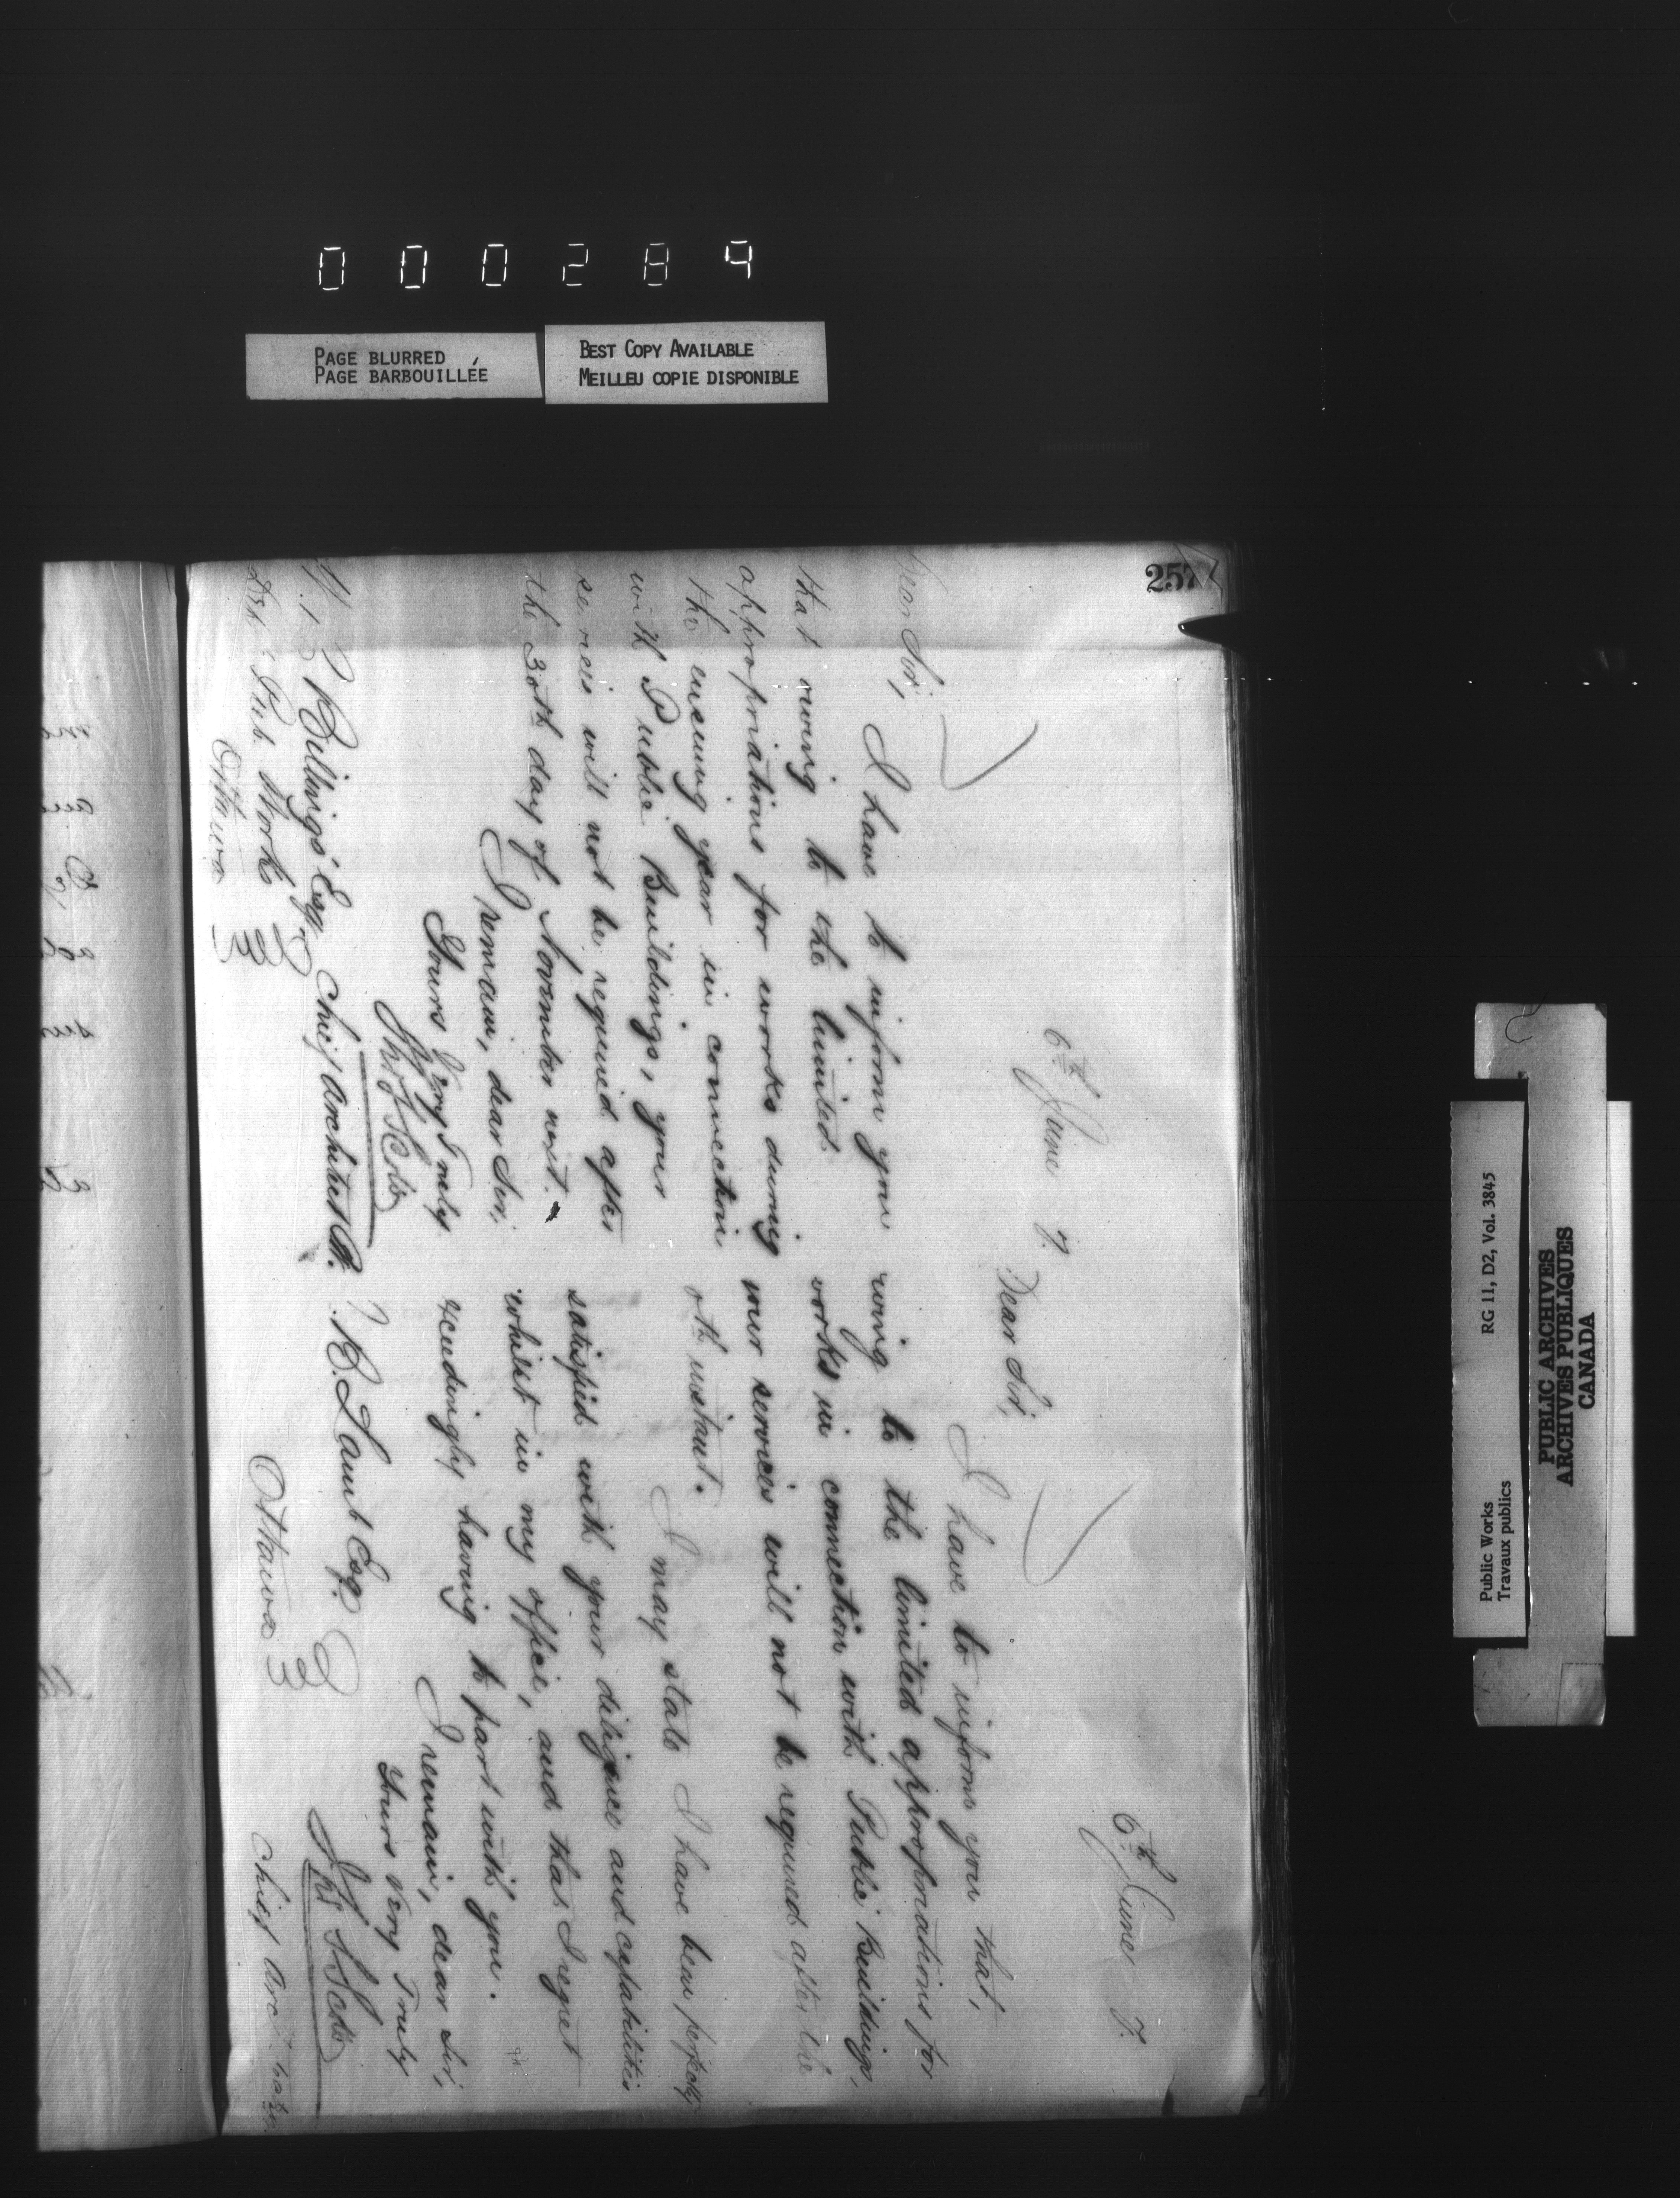 000284
PAGE BLURRED
PAGE BARBOUILLÉE
BEST COPY AVAILABLE
MEILLEU COPIE DISPONIBLE
257
6th June 7.
Dear Sir,
I have to inform you
that owing to the limited
appropriations for works during
the ensuing year in connection
with Public Buildings, your
services will not be required after
the 30th day of November next.
I remain, dear Sir,
Yours Very Truly
Chief Architect
Billings Esqr
Pub. Works
Ottawa
6th June 7.
Dear Sir,
I have to inform you that,
owing to the limited appropriations for
works in connection with Public Buildings,
your services will not be required after the
instant.
I may state I have been perfectly
satisfied with your diligence and capabilities
whilst in my office, and that I regret
exceedingly having to part with you.
I remain, dear Sir,
Yours very Truly
Chief Arc
Esq.
Ottawa
Public Works
Travaux publics
RG 11, D2, Vol. 3845
PUBLIC ARCHIVES
ARCHIVES PUBLIQUES
CANADA